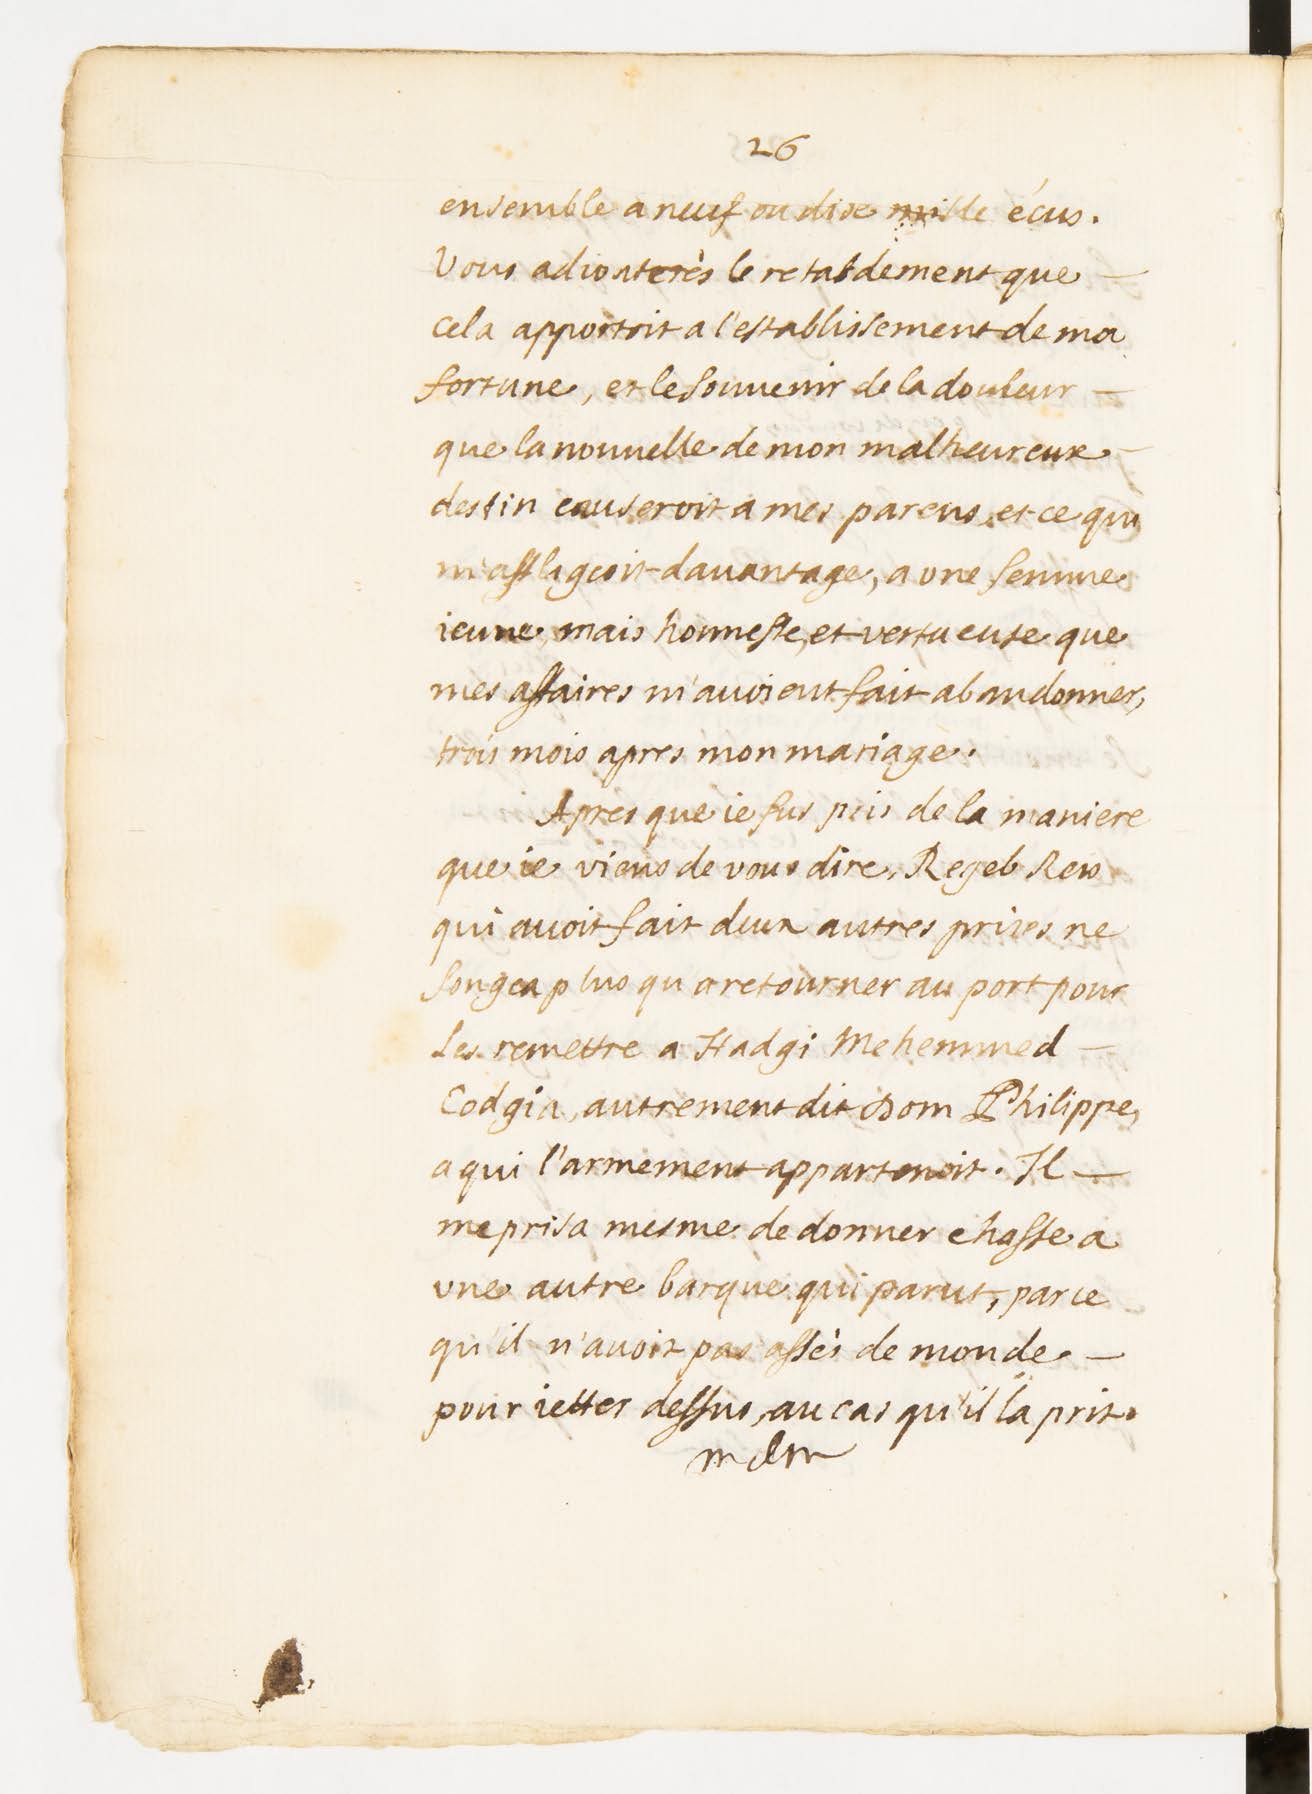 26
ensemble a neuf ou dixe mille écus.
Vous adiouterès le retardement que —
cela apportoit a l'establissement de ma
fortune, et le souuenir de la douleur —
que la nouuelle de mon malheureux —
destin causeroit a mes parens, et ce qui
m'affligeoit dauantage, a vne femme
ieune, mais honneste, et vertueuse que
mes affaires m'auoient fait abandonner,
trois mois apres mon mariage.
Apres que ie fus pris de la maniere
que ie viens de vous dire, Regeb Reis
qui auoit fait deux autres prises ne
songea plus qu a retourner au port pour
les remettre a Hadgi Mehemmed —
Codgia, autrement dit Dom Philippe,
a qui l'armement appartenoit. Il —
meprisa mesme de donner chasse a
vne autre barque qui parut, parce
qu'il n'auoit pas assès de monde —
pour ietter dessus, au cas qu'il la prit.